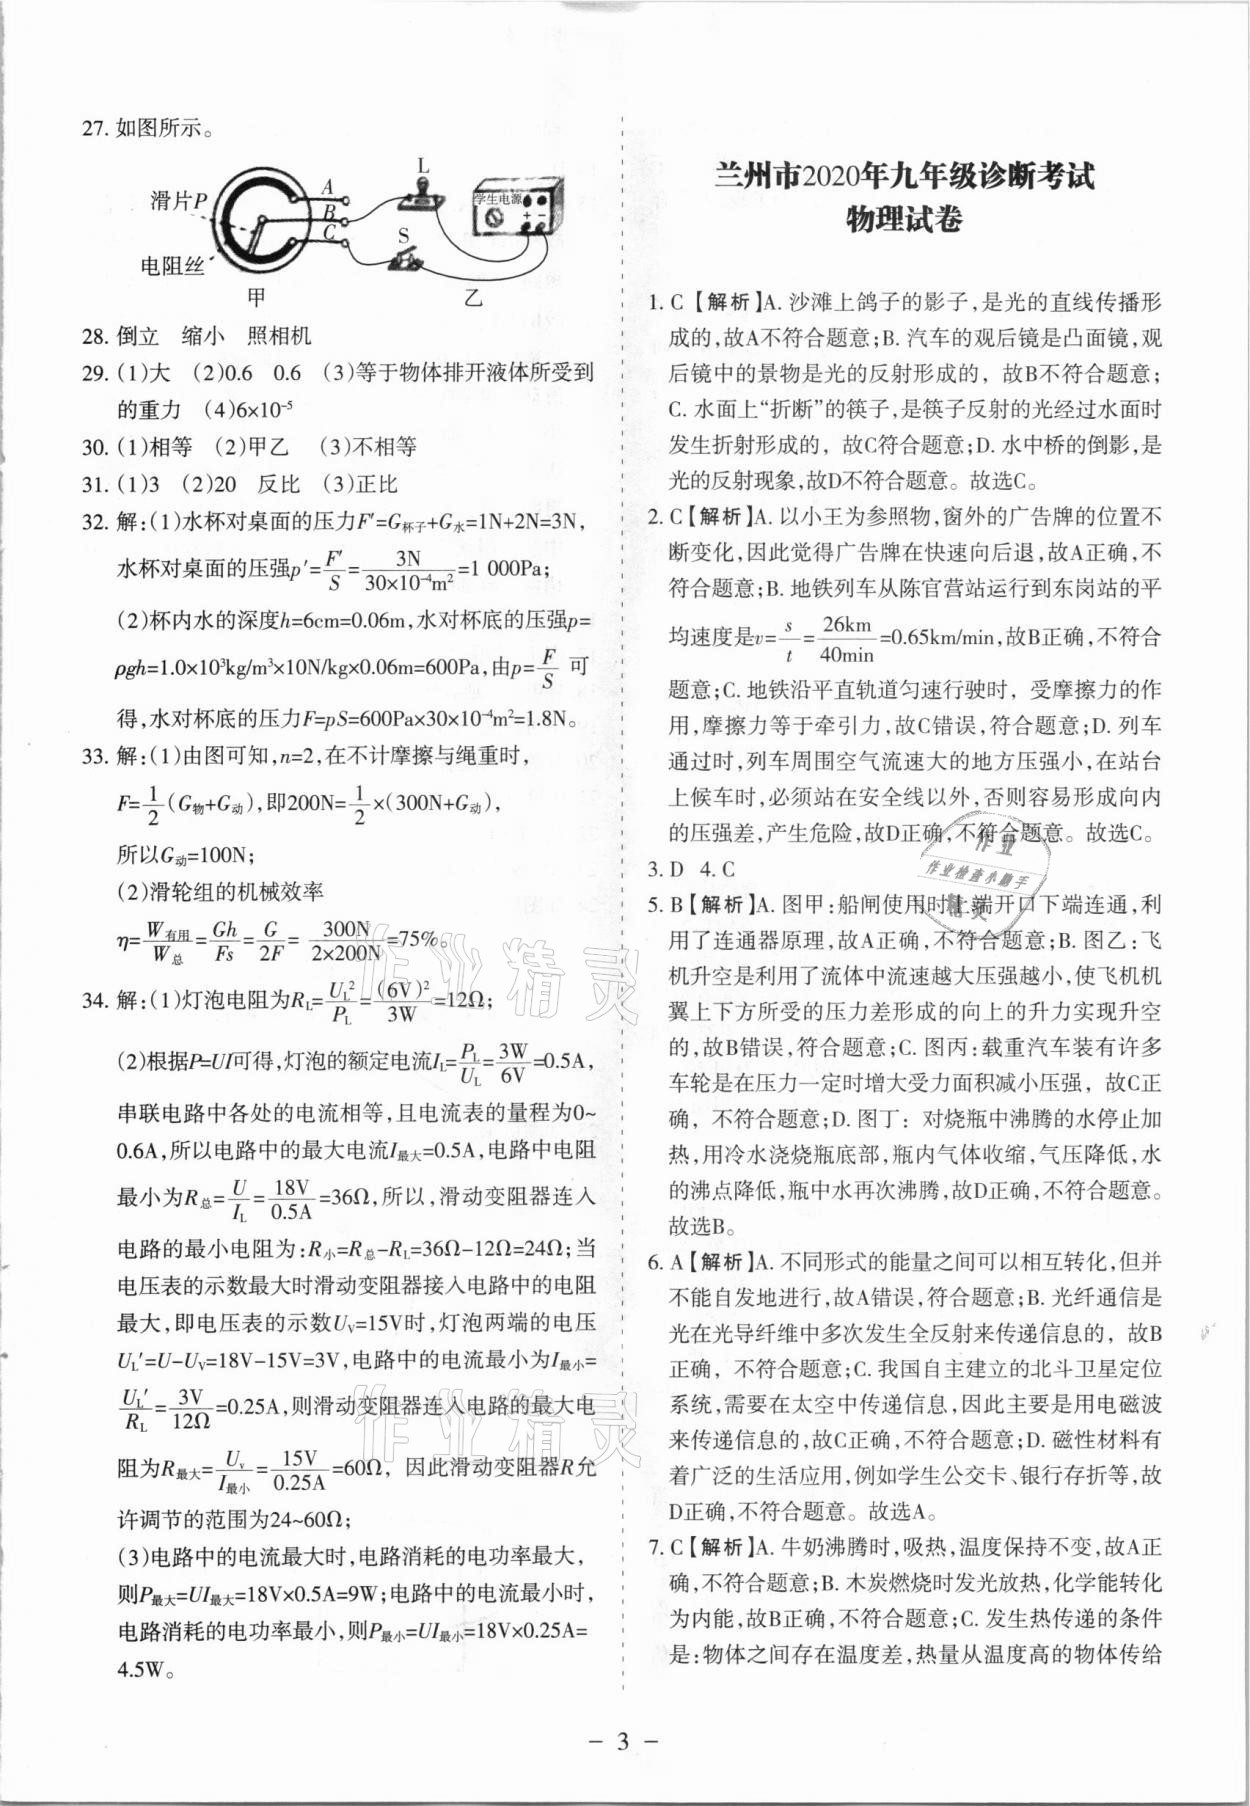 27. 如图所示。
滑片P
电阻丝
A
B
C
甲
L
S
学生电源
+ −
乙
28. 倒立　缩小　照相机
29. (1)大　(2)0.6　0.6　(3)等于物体排开液体所受到
的重力　(4)6×10⁻⁵
30. (1)相等　(2)甲乙　(3)不相等
31. (1)3　(2)20　反比　(3)正比
32. 解:(1)水杯对桌面的压力F′=G杯子+G水=1N+2N=3N,
水杯对桌面的压强p′=F′/S=3N/30×10⁻⁴m²=1 000Pa;
(2)杯内水的深度h=6cm=0.06m,水对杯底的压强p=
ρgh=1.0×10³kg/m³×10N/kg×0.06m=600Pa,由p=F/S 可
得,水对杯底的压力F=pS=600Pa×30×10⁻⁴m²=1.8N。
33. 解:(1)由图可知,n=2,在不计摩擦与绳重时,
F=1/2(G物+G动),即200N=1/2×(300N+G动),
所以G动=100N;
(2)滑轮组的机械效率
η=W有用/W总=Gh/Fs=G/2F=300N/2×200N=75%。
34. 解:(1)灯泡电阻为RL=UL²/PL=(6V)²/3W=12Ω;
(2)根据P=UI可得,灯泡的额定电流IL=PL/UL=3W/6V=0.5A,
串联电路中各处的电流相等,且电流表的量程为0~
0.6A,所以电路中的最大电流I最大=0.5A,电路中电阻
最小为R总=U/IL=18V/0.5A=36Ω,所以,滑动变阻器连入
电路的最小电阻为:R小=R总−RL=36Ω−12Ω=24Ω;当
电压表的示数最大时滑动变阻器接入电路中的电阻
最大,即电压表的示数UV=15V时,灯泡两端的电压
UL′=U−UV=18V−15V=3V,电路中的电流最小为I最小=
UL′/RL=3V/12Ω=0.25A,则滑动变阻器连入电路的最大电
阻为R最大=Uv/I最小=15V/0.25A=60Ω，因此滑动变阻器R允
许调节的范围为24~60Ω;
(3)电路中的电流最大时,电路消耗的电功率最大,
则P最大=UI最大=18V×0.5A=9W;电路中的电流最小时,
电路消耗的电功率最小,则P最小=UI最小=18V×0.25A=
4.5W。
兰州市2020年九年级诊断考试
物理试卷
1. C【解析】A. 沙滩上鸽子的影子,是光的直线传播形
成的,故A不符合题意;B. 汽车的观后镜是凸面镜,观
后镜中的景物是光的反射形成的，故B不符合题意;
C. 水面上“折断”的筷子,是筷子反射的光经过水面时
发生折射形成的，故C符合题意;D. 水中桥的倒影,是
光的反射现象,故D不符合题意。故选C。
2. C【解析】A. 以小王为参照物,窗外的广告牌的位置不
断变化,因此觉得广告牌在快速向后退,故A正确,不
符合题意;B. 地铁列车从陈官营站运行到东岗站的平
均速度是v=s/t=26km/40min=0.65km/min,故B正确,不符合
题意;C. 地铁沿平直轨道匀速行驶时，受摩擦力的作
用,摩擦力等于牵引力,故C错误,符合题意;D. 列车
通过时,列车周围空气流速大的地方压强小,在站台
上候车时,必须站在安全线以外,否则容易形成向内
的压强差,产生危险,故D正确,不符合题意。故选C。
3. D　4. C
5. B【解析】A. 图甲:船闸使用时上端开口下端连通,利
用了连通器原理,故A正确,不符合题意;B. 图乙:飞
机升空是利用了流体中流速越大压强越小,使飞机机
翼上下方所受的压力差形成的向上的升力实现升空
的,故B错误,符合题意;C. 图丙:载重汽车装有许多
车轮是在压力一定时增大受力面积减小压强，故C正
确，不符合题意;D. 图丁：对烧瓶中沸腾的水停止加
热,用冷水浇烧瓶底部,瓶内气体收缩,气压降低,水
的沸点降低,瓶中水再次沸腾,故D正确,不符合题意。
故选B。
6. A【解析】A. 不同形式的能量之间可以相互转化,但并
不能自发地进行,故A错误,符合题意;B. 光纤通信是
光在光导纤维中多次发生全反射来传递信息的，故B
正确，不符合题意;C. 我国自主建立的北斗卫星定位
系统,需要在太空中传递信息,因此主要是用电磁波
来传递信息的,故C正确,不符合题意;D. 磁性材料有
着广泛的生活应用,例如学生公交卡、银行存折等,故
D正确,不符合题意。故选A。
7. C【解析】A. 牛奶沸腾时,吸热,温度保持不变,故A正
确,不符合题意;B. 木炭燃烧时发光放热,化学能转化
为内能,故B正确,不符合题意;C. 发生热传递的条件
是:物体之间存在温度差,热量从温度高的物体传给
作业
作业检查小助手
精灵
作业精灵
作业精灵
− 3 −